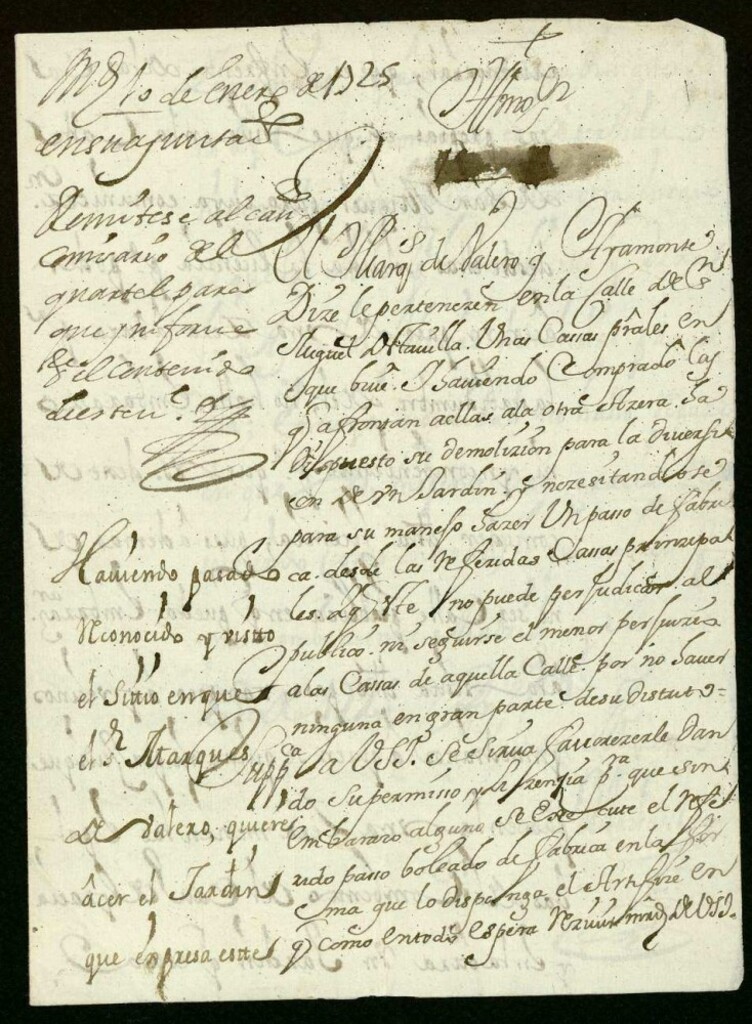 10 de Enero de 1725
en su ayuntam
Remitese al cav
comisario del
quartel para
que ynforme
de el contenido
de este
Illmo Sr
El Marqs de Valero y Ayamonte
Dize le pertenezen en la Calle de Sn
Miguel Una Cassas prales en
que bive. I haviendo Comprado las
q afrontan a ellas a la otra Azera. ha
dispuesto su demolizion para la diversi
on de un Jardin. y nezesitandose
para su manejo hazer Un passo de fabri
ca. desde las referidas Cassas prinzipa
les. no puede perjudicar al
publico. ni seguirse el menor perjuizio
a las Cassas de aquella Calle. por no haver
ninguna en gran parte de su distrito
Suppca a VSI. se sirva favorezerle dan
do su permisso y lizenzia pra que sin
embarazo alguno se execute el refe
rido passo boleado de fabrica en la for
ma que lo disponga el Artifize en
q como en todo espera rezivir mrd de VSI.
Haviendo pasado
Reconocido y visto
el Sittio en que
el Sr Marques
de Valero, quiere
acer el Jardin
que expresa este